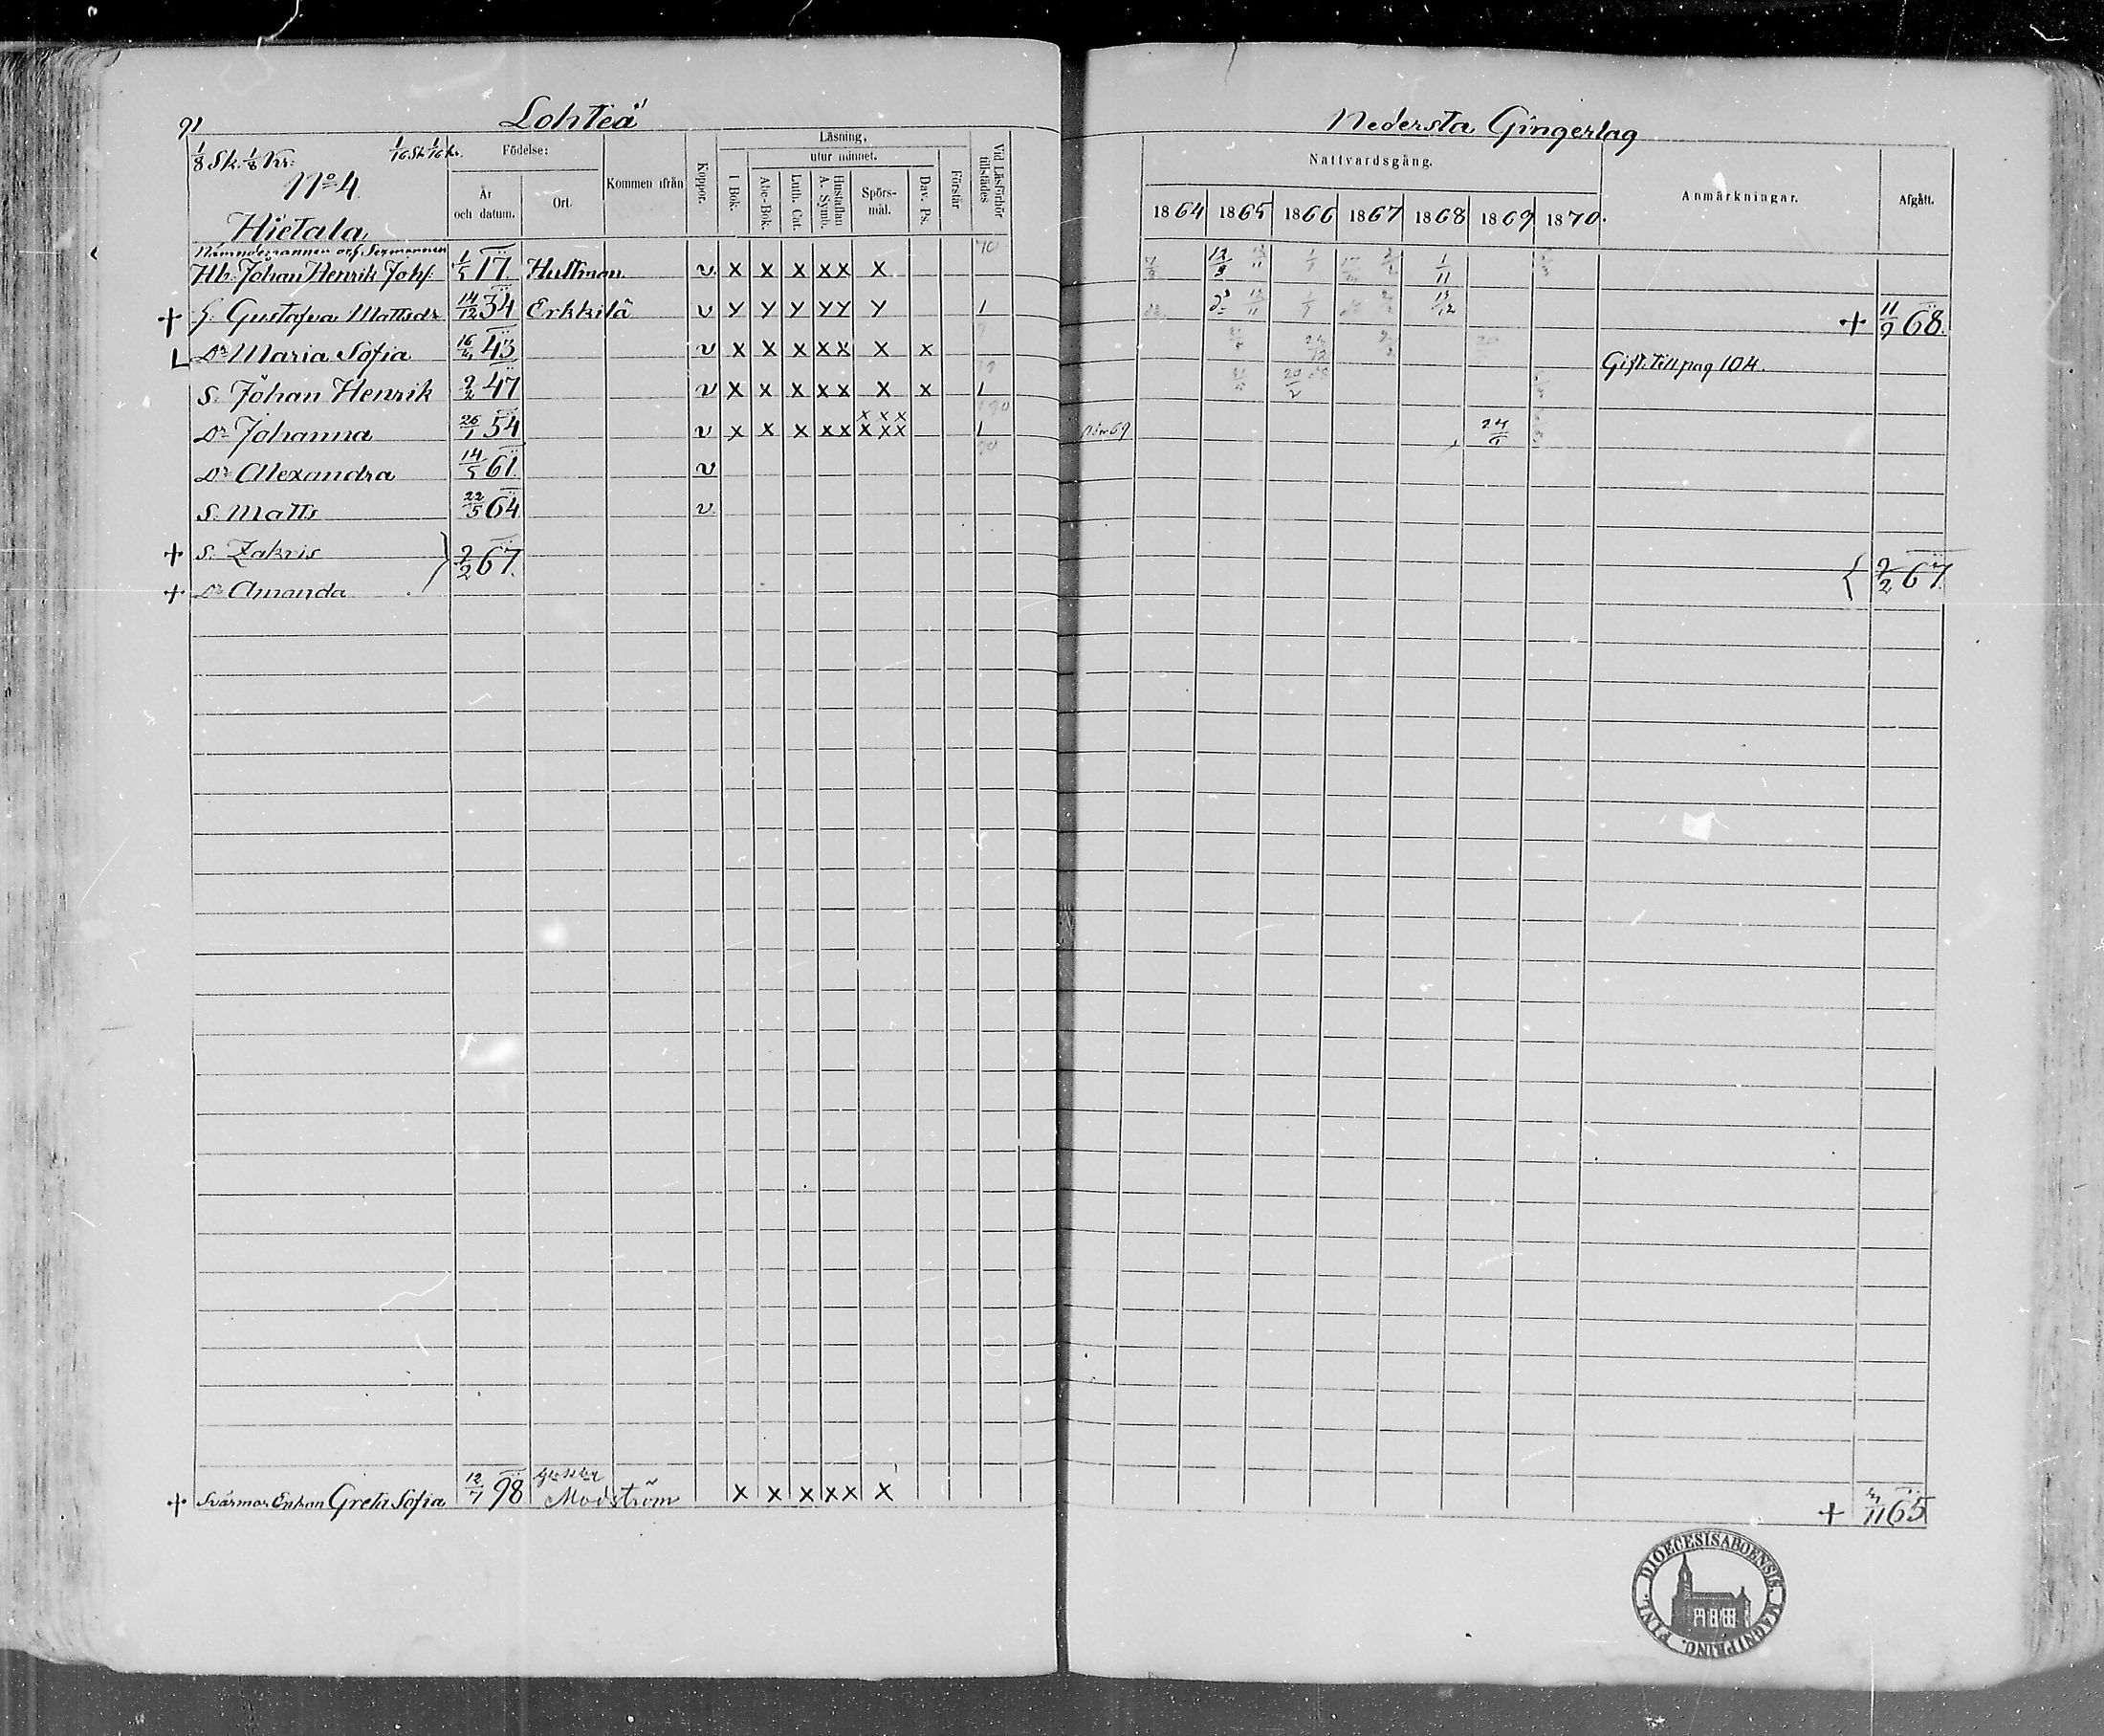 91 Lohteå Nedersta Gingerlag
1/8 Sk. 1/8 Kr. 1/16 Sk 1/16 Kr.
N:o 4
Hietala
Födelse:
År och datum.
Ort.
Kommen ifrån
Koppor.
Läsning,
utur minnet.
I Bok.
Abc-Bok.
Luth. Cat.
Hustaflan A. Symb.
Spörs-mål.
Dav. Ps.
Förstår
Vid Läsförhör tillstädes
Nattvardsgång.
1864 1865 1866 1867 1868 1869 1870.
Anmärkningar.
Afgått.
Nämndemannen och Sexmannen
Hb. Johan Henrik Johs. 1/5 17 Hultman v x x x x x x 12/9 1/11
+ H. Gustafva Mattsdr 14/12 34 Erkkilä v y y y y y y 1 + 11/9 68.
L Dr Maria Sofia 43 v x x x x x x x Gift. till pag 104.
S. Johan Henrik 9/2 47 v x x x x x x x 1
Dr Johanna 26/1 54 v x x x x x x x x x x x 1 24/6
Dr Alexandra 14/5 61. v
S. Matts 22/5 64 v
+ S. Zakris } 2/2 67. { 2/2 67.
+ Dr Amanda
+ Svärmor Enkan Greta Sofia 12/7 98 Modström x x x x x x + 11 65
DIOECESIS ABOENSIS. MAGNI PRINC. FINL.